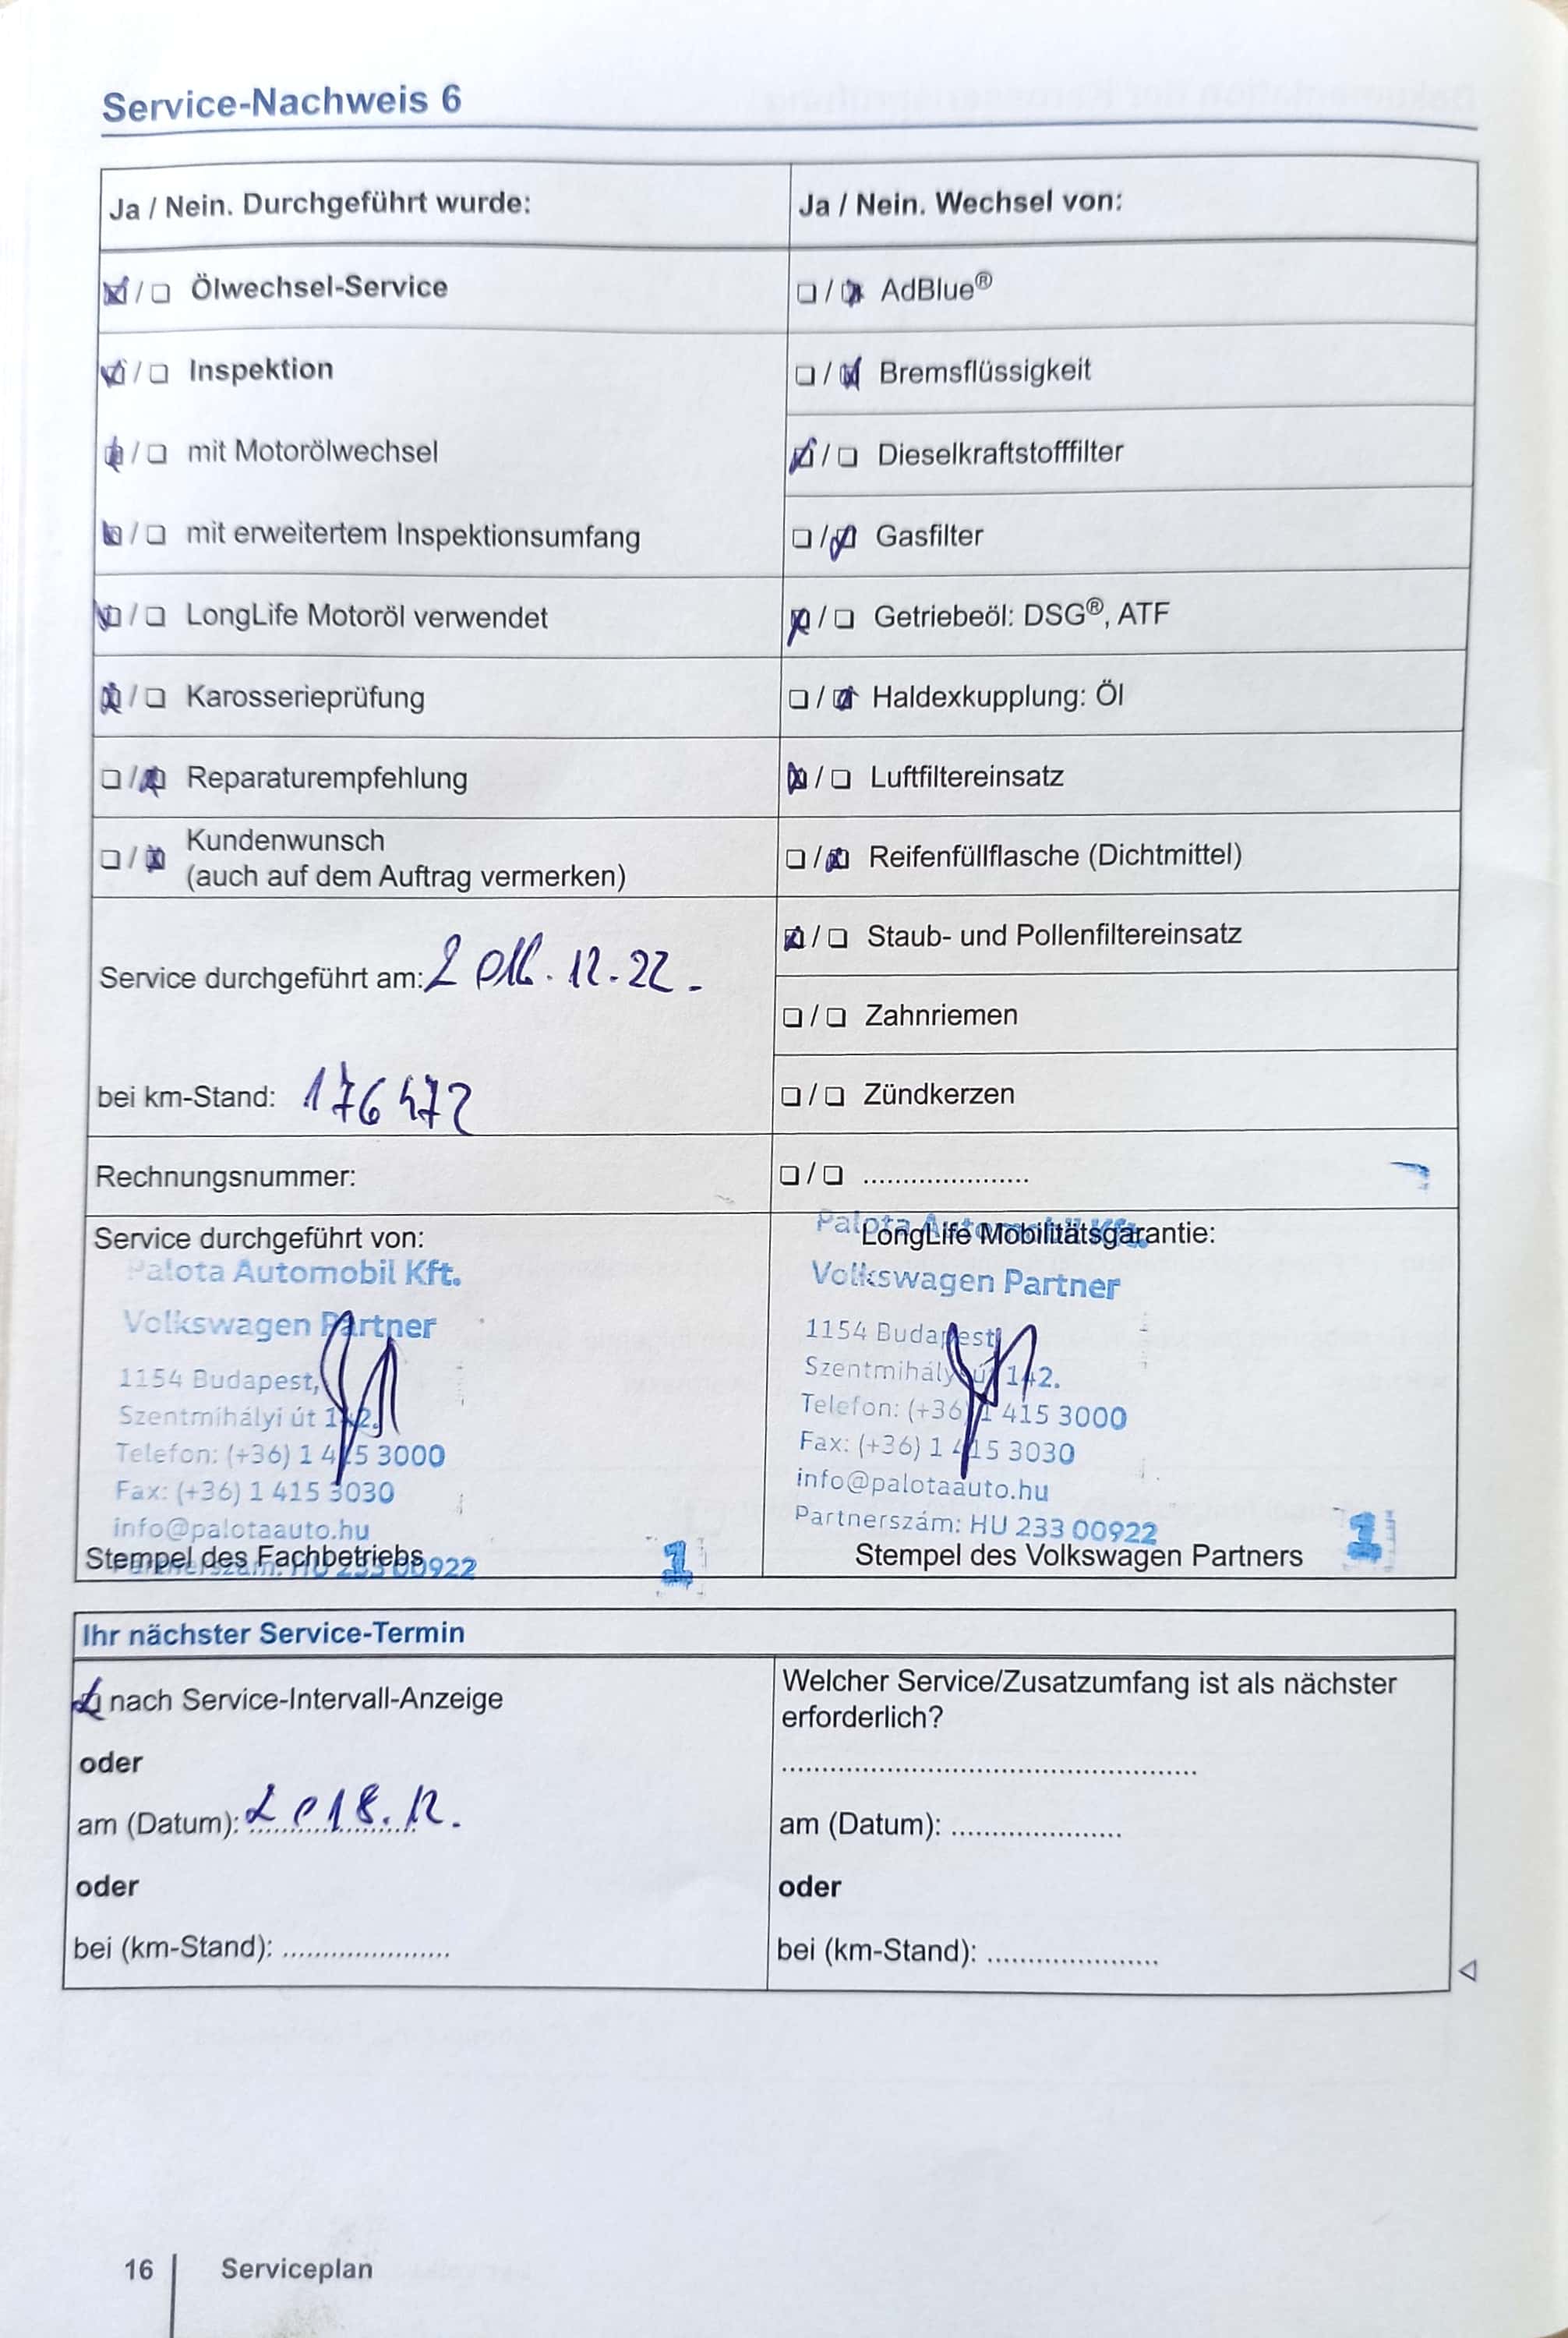 Service-Nachweis 6
Ja / Nein. Durchgeführt wurde:
☒ / ☐ Ölwechsel-Service
☒ / ☐ Inspektion
☒ / ☐ mit Motorölwechsel
☒ / ☐ mit erweitertem Inspektionsumfang
☒ / ☐ LongLife Motoröl verwendet
☒ / ☐ Karosserieprüfung
☐ / ☒ Reparaturempfehlung
☐ / ☒ Kundenwunsch
(auch auf dem Auftrag vermerken)
Service durchgeführt am: 12.22.
bei km-Stand: 176472
Rechnungsnummer:
Ja / Nein. Wechsel von:
☐ / ☒ AdBlue®
☐ / ☒ Bremsflüssigkeit
☒ / ☐ Dieselkraftstofffilter
☐ / ☒ Gasfilter
☒ / ☐ Getriebeöl: DSG®, ATF
☐ / ☒ Haldexkupplung: Öl
☒ / ☐ Luftfiltereinsatz
☐ / ☒ Reifenfüllflasche (Dichtmittel)
☒ / ☐ Staub- und Pollenfiltereinsatz
☐ / ☐ Zahnriemen
☐ / ☐ Zündkerzen
☐ / ☐ .....................
Service durchgeführt von:
Palota Automobil Kft.
Volkswagen Partner
1154 Budapest,
Szentmihályi út 142.
Telefon: (+36) 1 415 3000
Fax: (+36) 1 415 3030
info@palotaauto.hu
Partnerszám: HU 233 00922
Stempel des Fachbetriebs
1
LongLife Mobilitätsgarantie:
Palota Automobil Kft.
Volkswagen Partner
1154 Budapest,
Szentmihályi út 142.
Telefon: (+36) 1 415 3000
Fax: (+36) 1 415 3030
info@palotaauto.hu
Partnerszám: HU 233 00922
Stempel des Volkswagen Partners
1
Ihr nächster Service-Termin
☒ nach Service-Intervall-Anzeige
oder
am (Datum): 2018.12.
oder
bei (km-Stand): .....................
Welcher Service/Zusatzumfang ist als nächster
erforderlich?
....................................................
am (Datum): .....................
oder
bei (km-Stand): .....................
16
Serviceplan